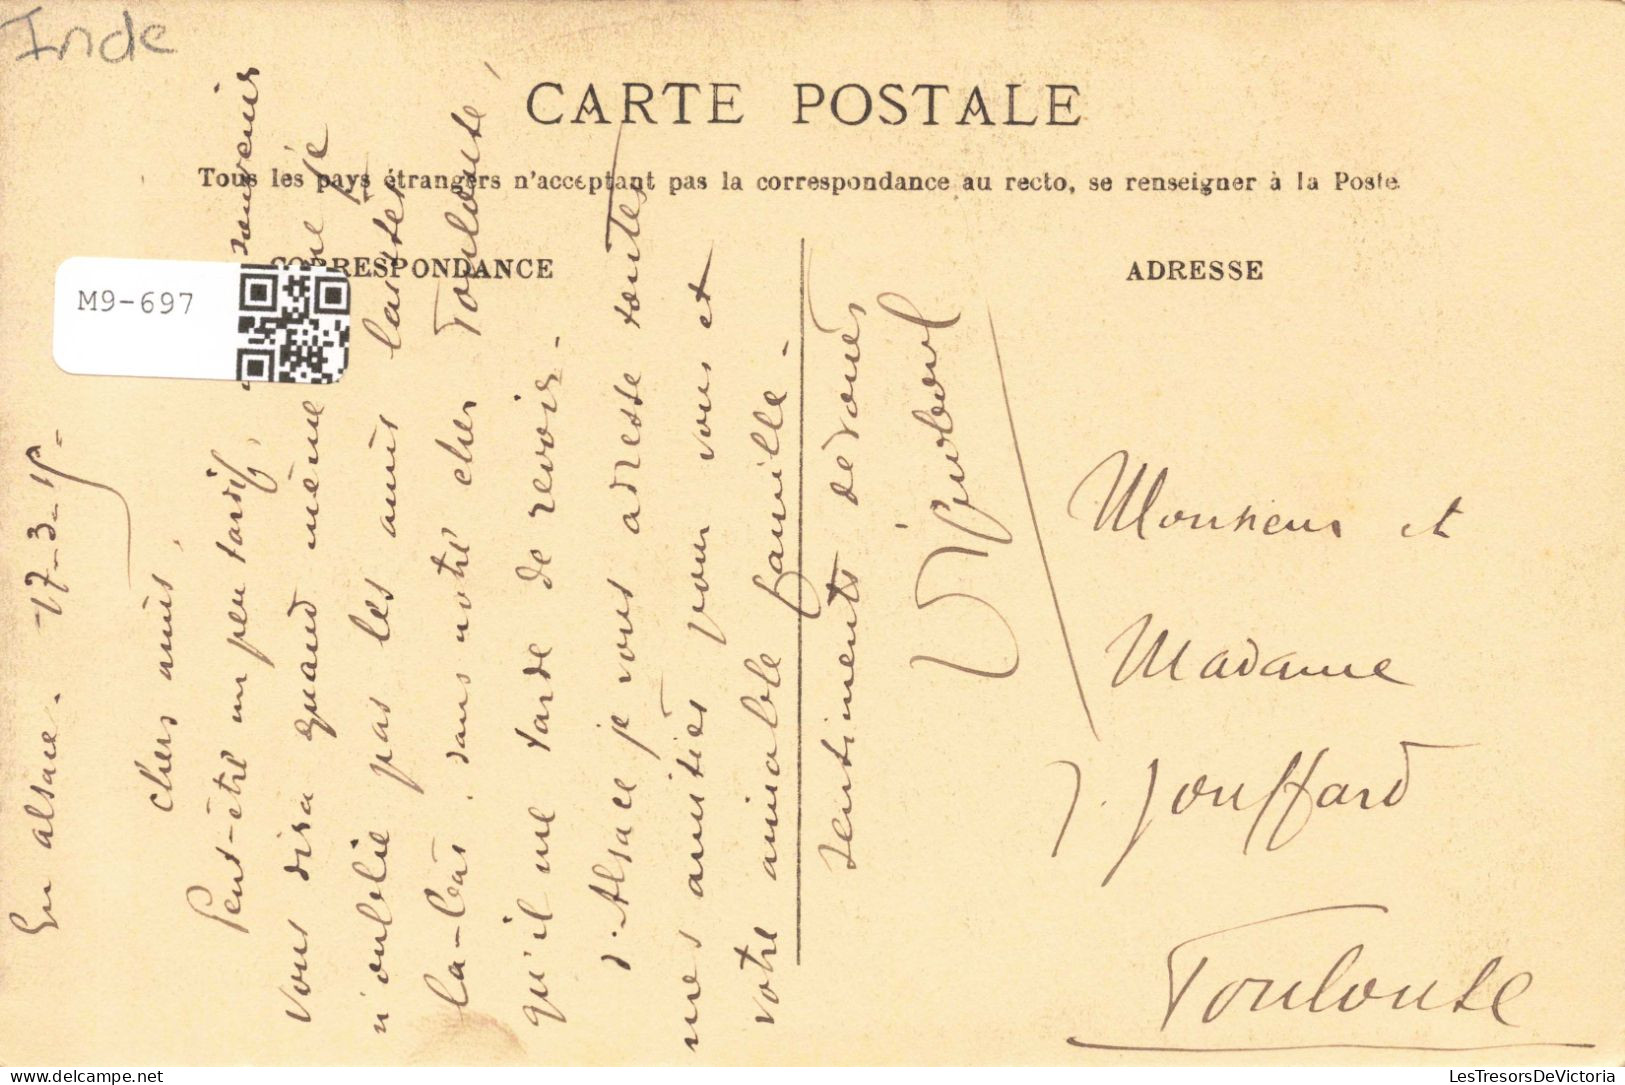 Inde
CARTE POSTALE
Tous les pays étrangers n'acceptant pas la correspondance au recto, se renseigner à la Poste
CORRESPONDANCE
ADRESSE
M9-697
En alsace. 17-3-15-
Chers amis,
Peut-être un peu tardif, souvenir
vous dira quand même que je
n'oublie pas les amis laissés
là-bas. dans notre cher Toulouse
qu'il me tarde de revoir.-
d'Alsace je vous adresse toutes
mes amitiés pour vous et
votre aimable famille.-
sentiments dévoués
Monsieur et
Madame
J. Jouffard
Toulouse
LesTresorsDeVictoria